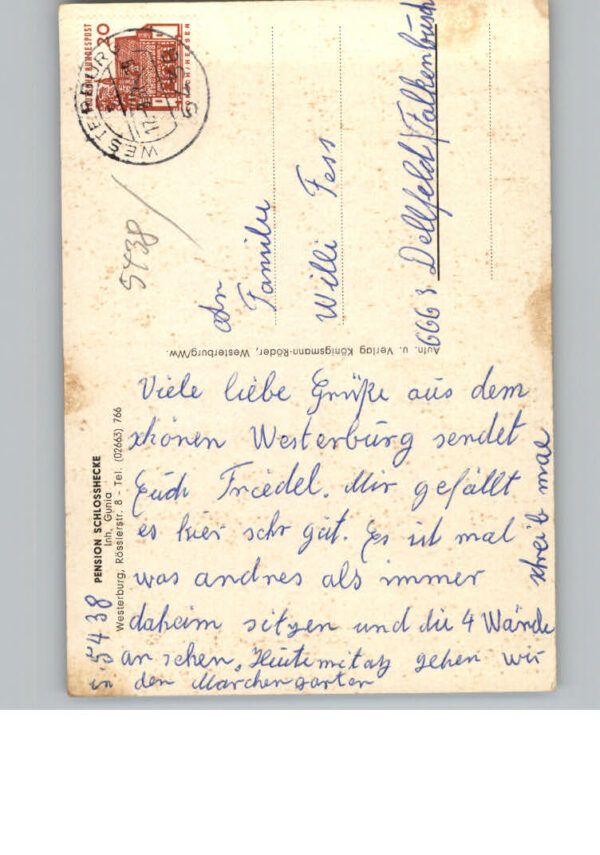 PENSION SCHLOSSHECKE
Inh. Gunia
Westerburg, Rösslerstr. 8 - Tel. (02663) 766
5438
Viele liebe Grüße aus dem
schönen Westerburg sendet
Euch Friedel. Mir gefällt
es hier sehr gut. Es ist mal
was andres als immer
daheim sitzen und die 4 Wände
an sehen. Heute mitag gehen wir
in den Märchengarten
schreib mal
Aufn. u. Verlag Königsmann-Röder, Westerburg/Ww.
DEUTSCHE BUNDESPOST
20
LORSCH/HESSEN
WESTERBURG
5438
An
Familie
Willi Fess
6663 Dellfeld/Falkenbusch